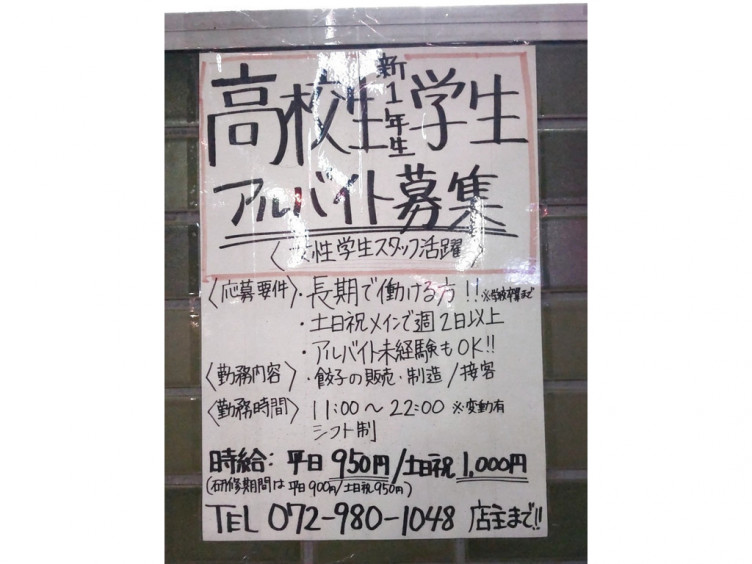 高校生 新1年生 学生
アルバイト募集
〈女性学生スタッフ活躍〉
〈応募要件〉・長期で働ける方!! ※学校卒業まで
・土日祝メインで週2日以上
・アルバイト未経験もOK!!
〈勤務内容〉・餃子の販売・制造/接客
〈勤務時間〉11:00〜22:00 ※変動有
シフト制
時給: 平日 950円/土日祝 1,000円
(研修期間は 平日 900円/土日祝 950円)
TEL 072-980-1048 店主まで!!